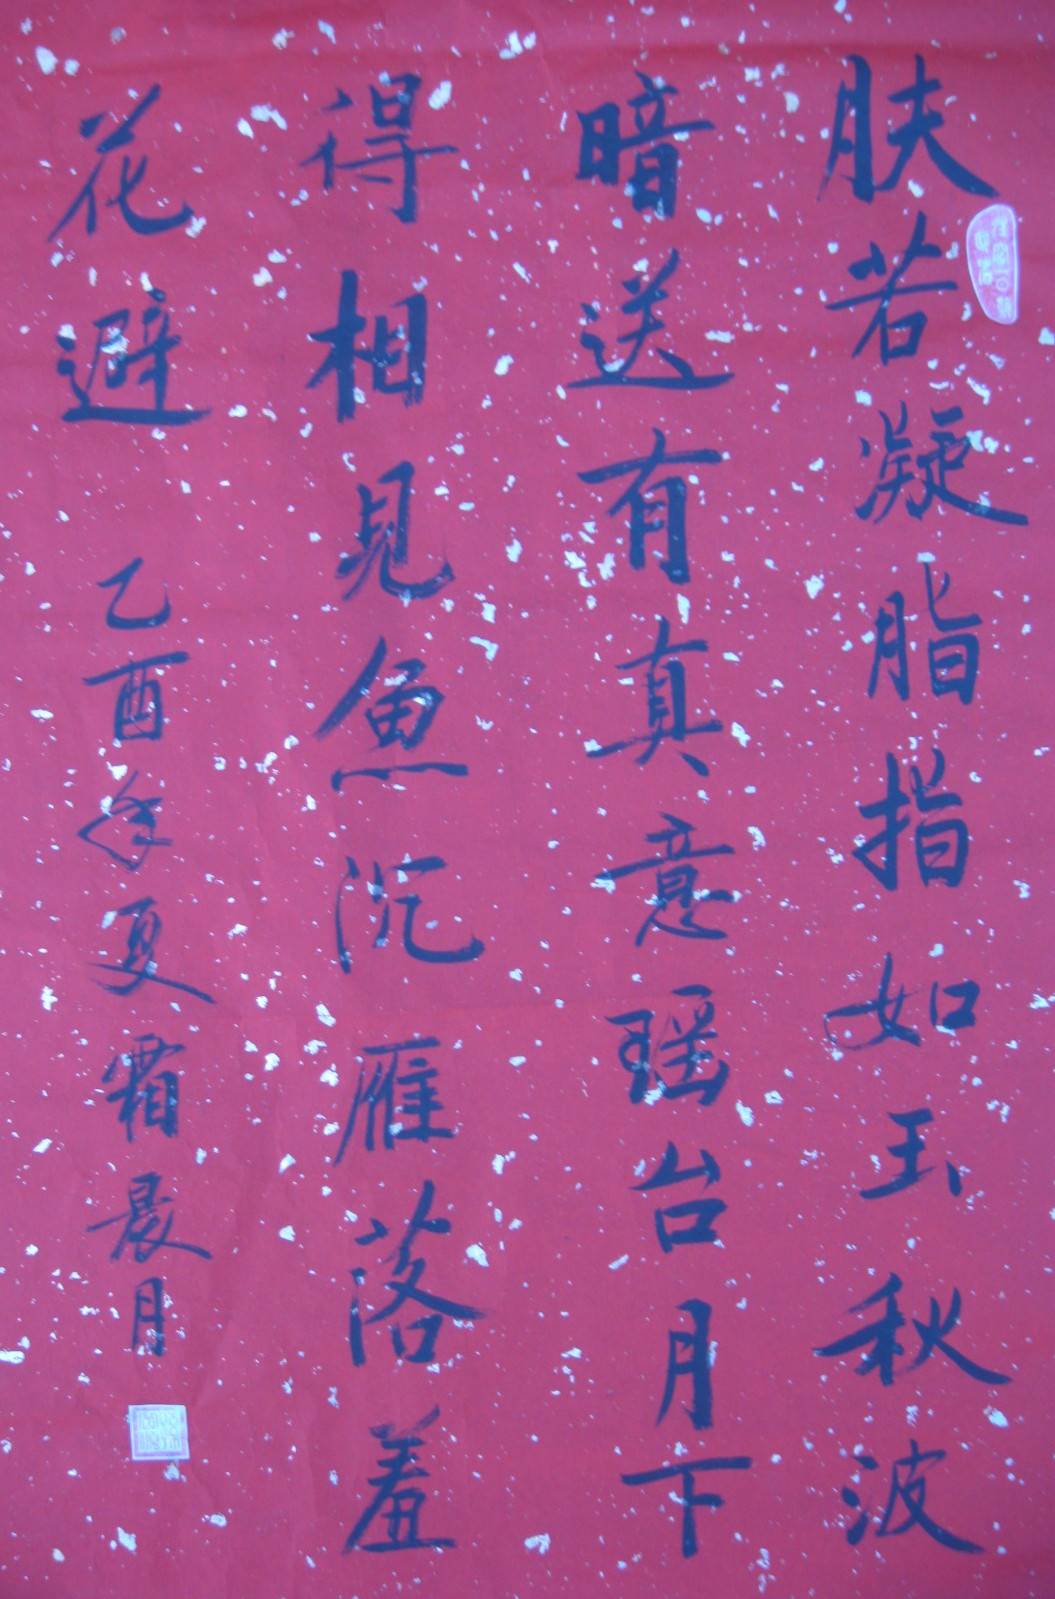 肤若凝脂指如玉秋波
暗送有真意瑶台月下
得相见鱼沉雁落羞
花避乙酉年夏霜晨月